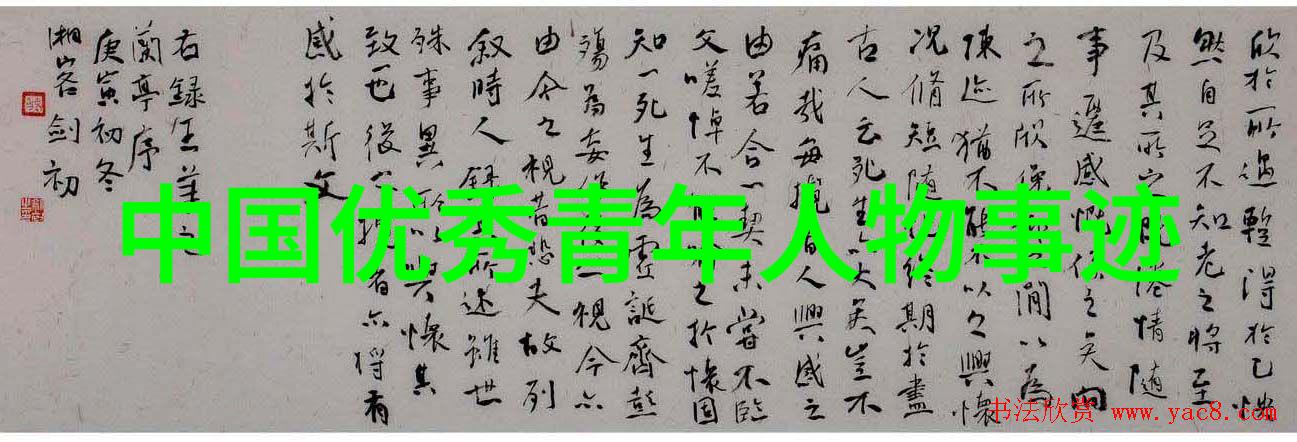 欣於所遇蹔得於己怏
然自足不知老之將至
及其所之既倦情隨
事遷感慨係之矣向
之所欣俛仰之間以為
陳迹猶不能不以之興懷
況脩短隨化終期於盡
古人云死生亦大矣豈不
痛哉每攬昔人興感之
由若合一契未嘗不臨
文嗟悼不能喻之於懷固
知一死生為虛誕齊彭
殤為妄作後之視今亦
由今之視昔悲夫故列
敘時人錄其所述雖世
殊事異所以興懷其
致一也後之攬者亦將有
感於斯文
右錄王羲之
蘭亭序
庚寅初冬
湘客劍初
中国优秀青年人物事迹
书法欣赏 www.yac8.com